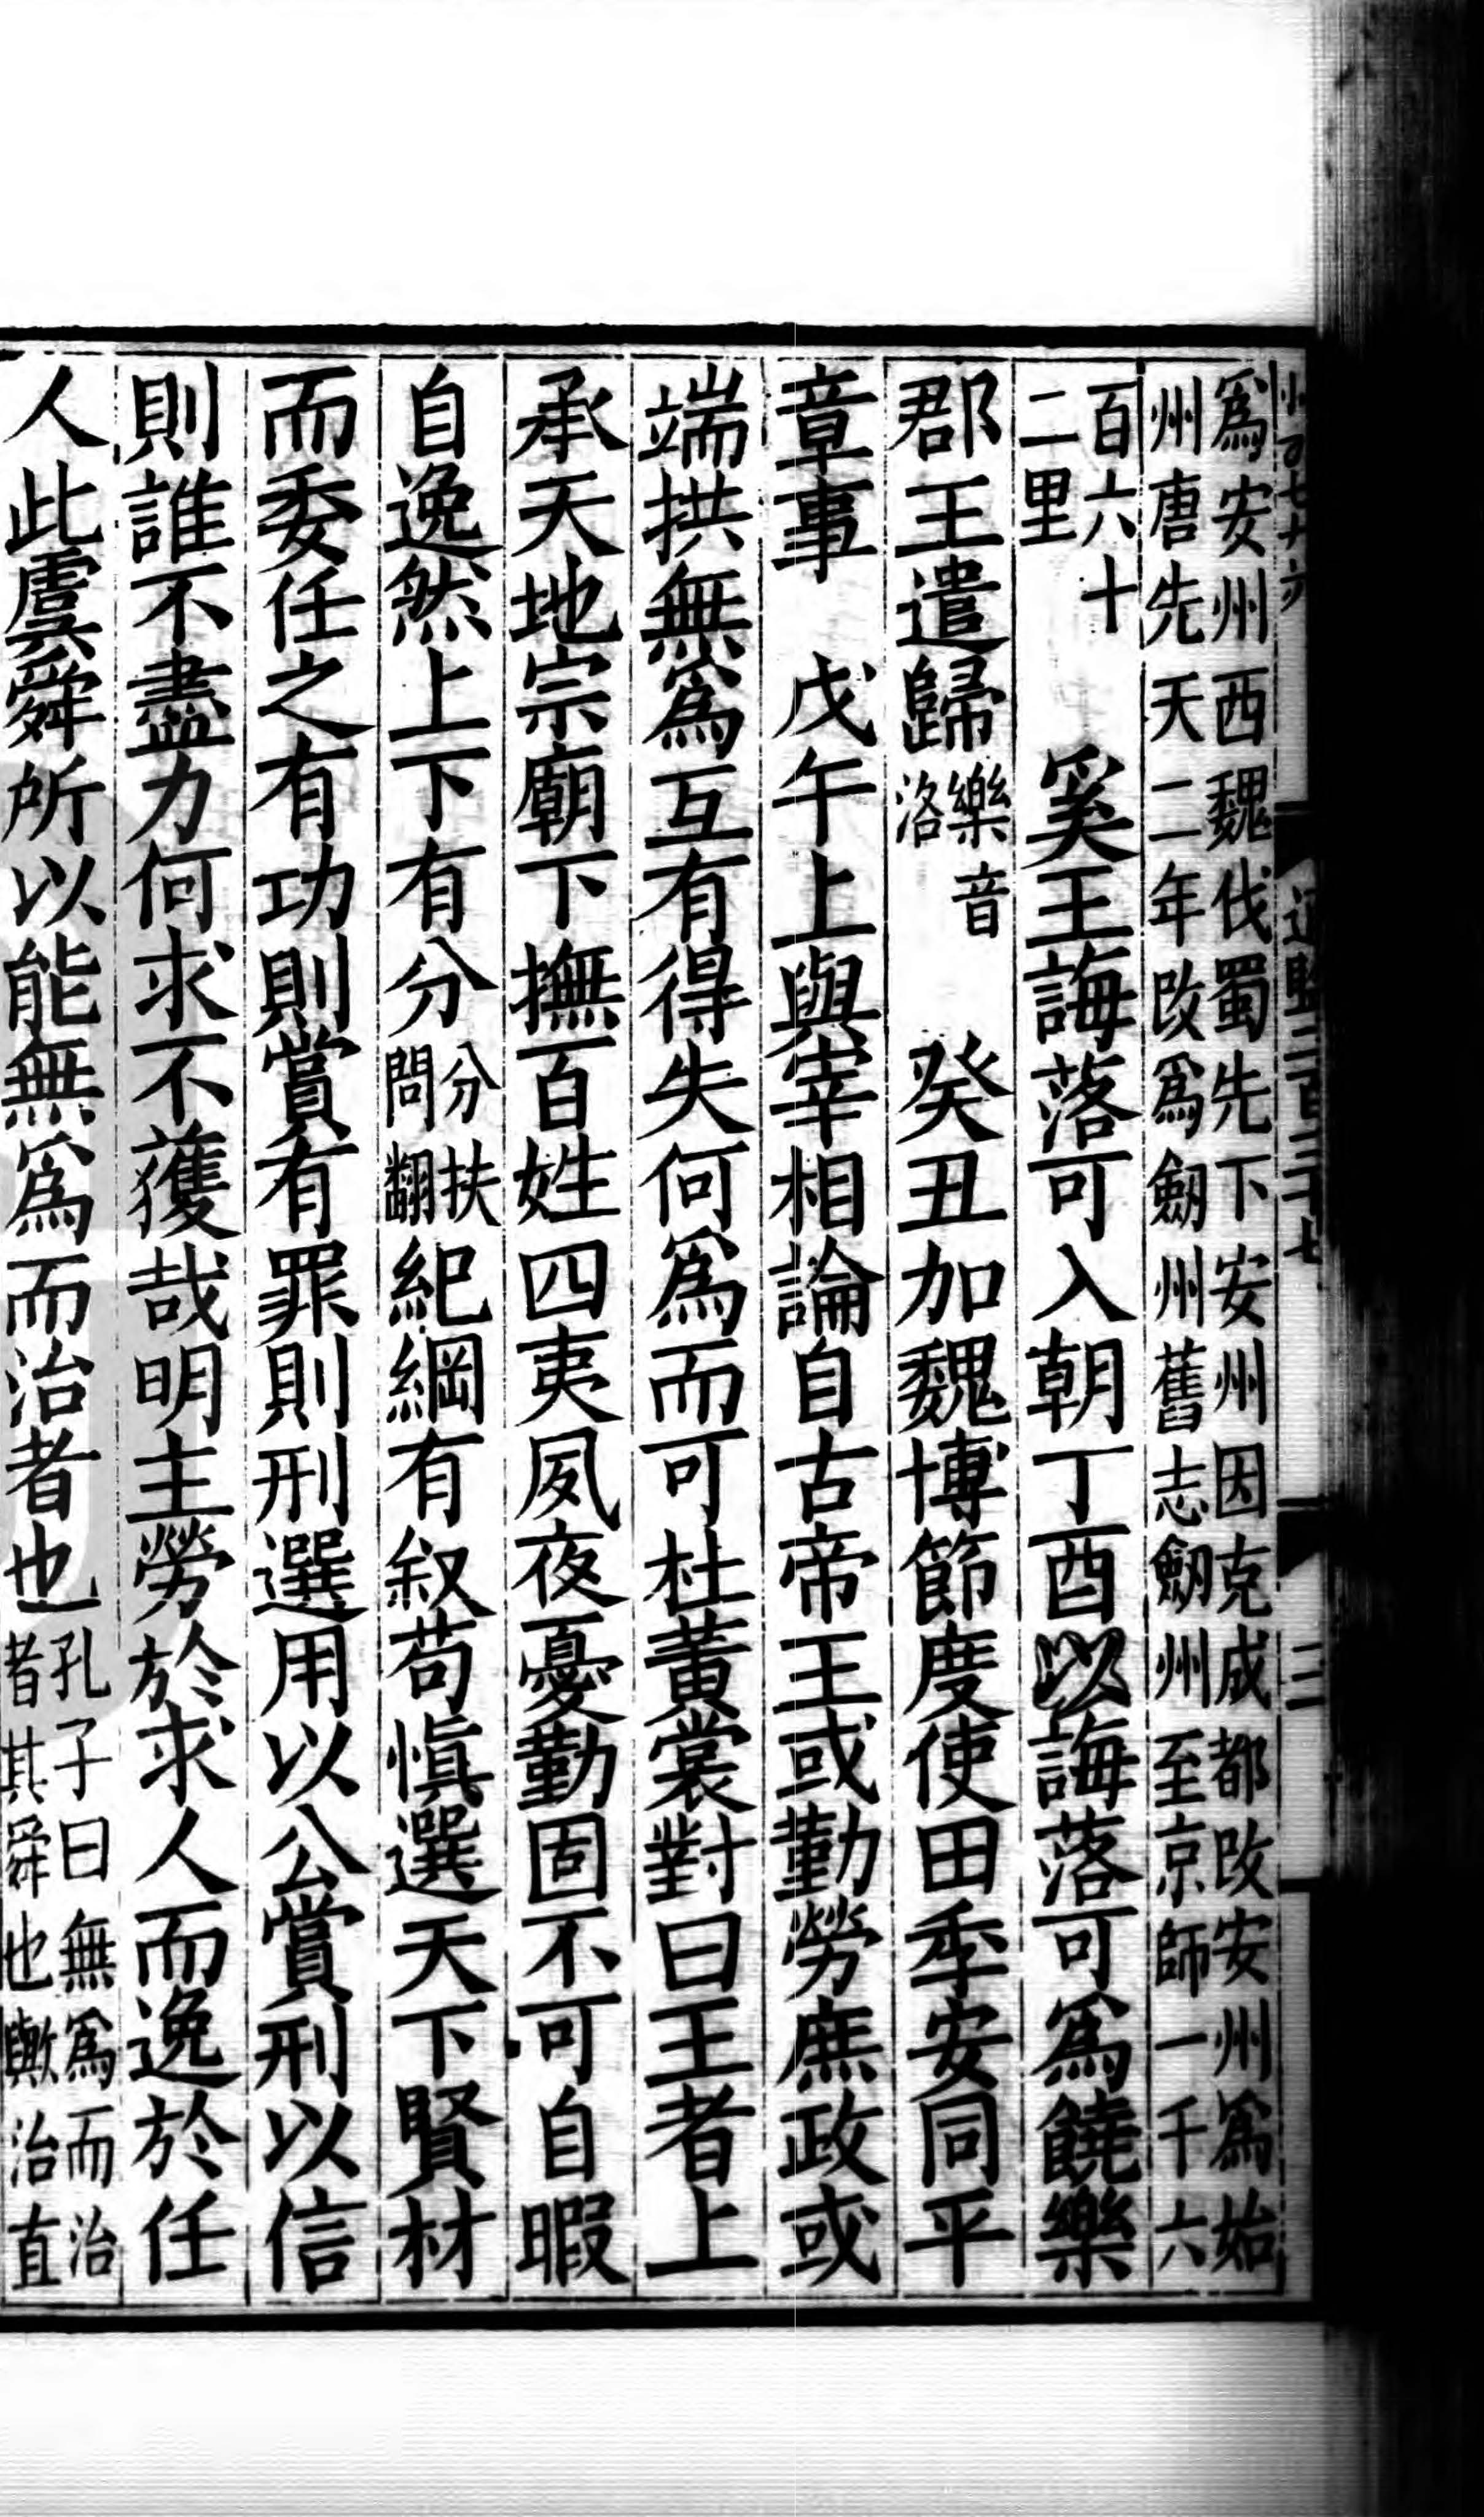 通鑑二百三十七 三
爲安州西魏伐蜀先下安州因克成都改安州爲始
州唐先天二年改爲劒州舊志劒州至京師一千六
百六十二里 奚王誨落可入朝丁酉以誨落可爲饒樂
郡王遣歸樂音洛 癸丑加魏博節度使田季安同平
章事 戊午上與宰相論自古帝王或勤勞庶政或
端拱無爲互有得失何爲而可杜黃裳對曰王者上
承天地宗廟下撫百姓四夷夙夜憂勤固不可自暇
自逸然上下有分分扶問翻紀綱有叙苟慎選天下賢材
而委任之有功則賞有罪則刑選用以公賞刑以信
則誰不盡力何求不獲哉明主勞於求人而逸於任
人此虞舜所以能無爲而治者也孔子曰無爲而治者其舜也歟治直